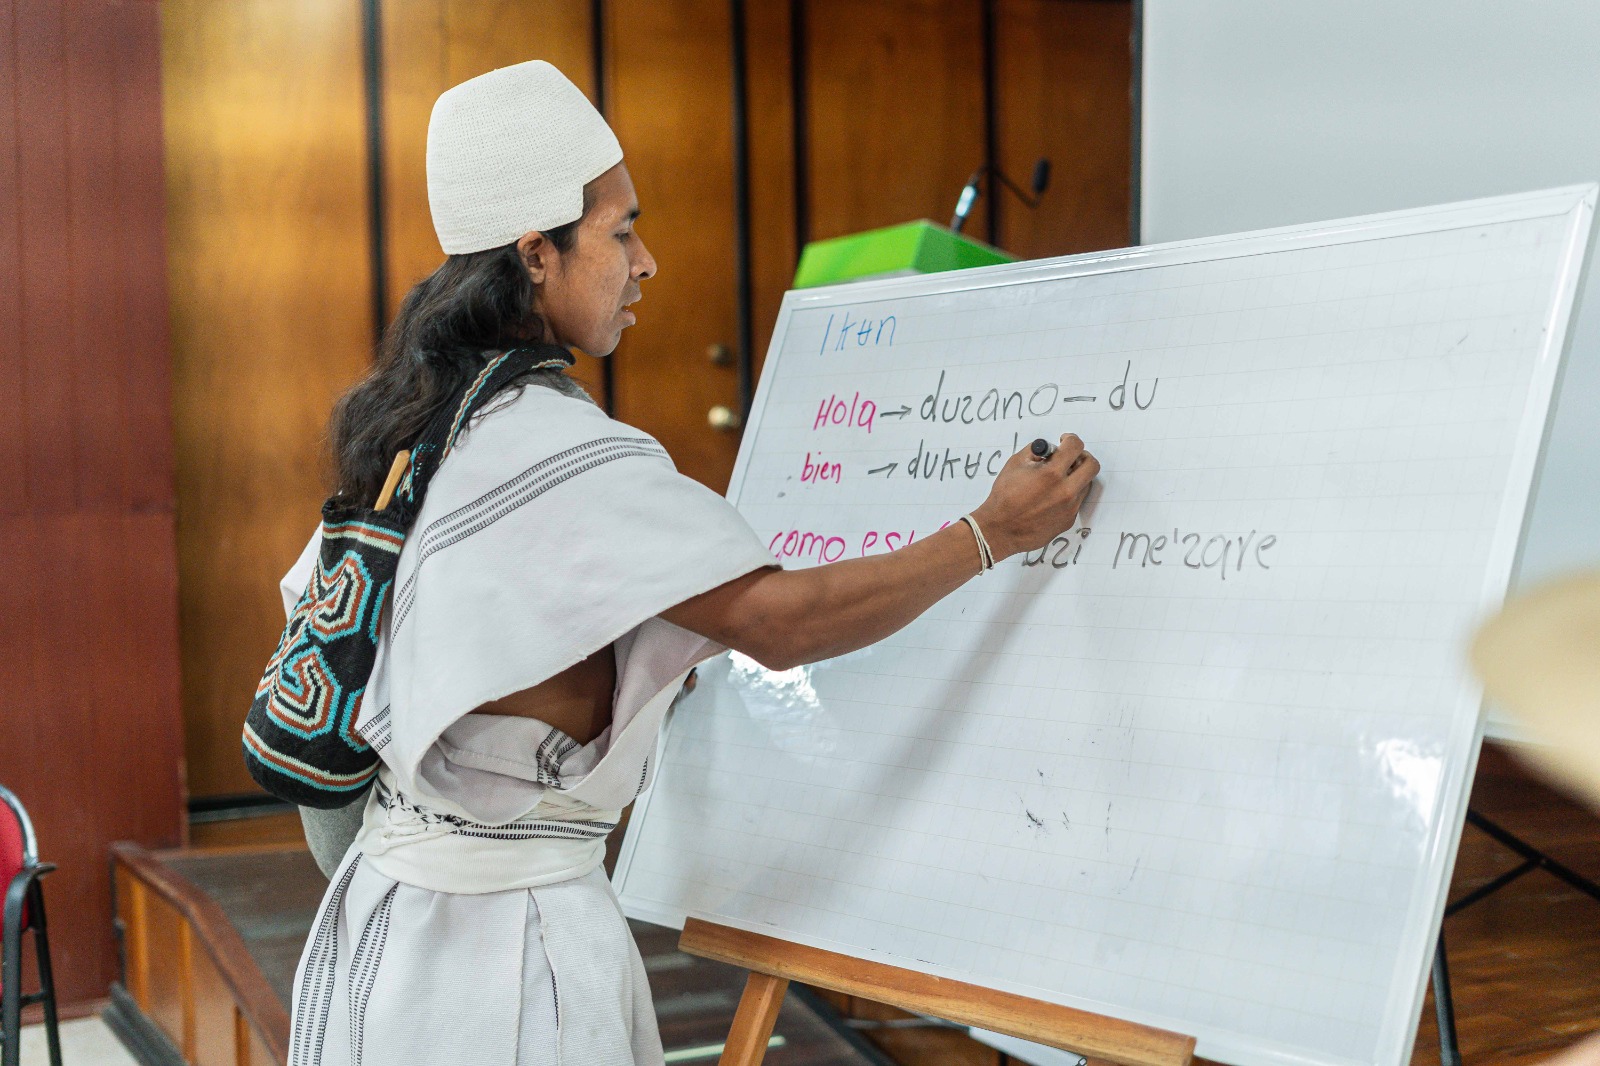 Ikʉn
Hola → duzano - du
bien → dukʉc
como me'zare